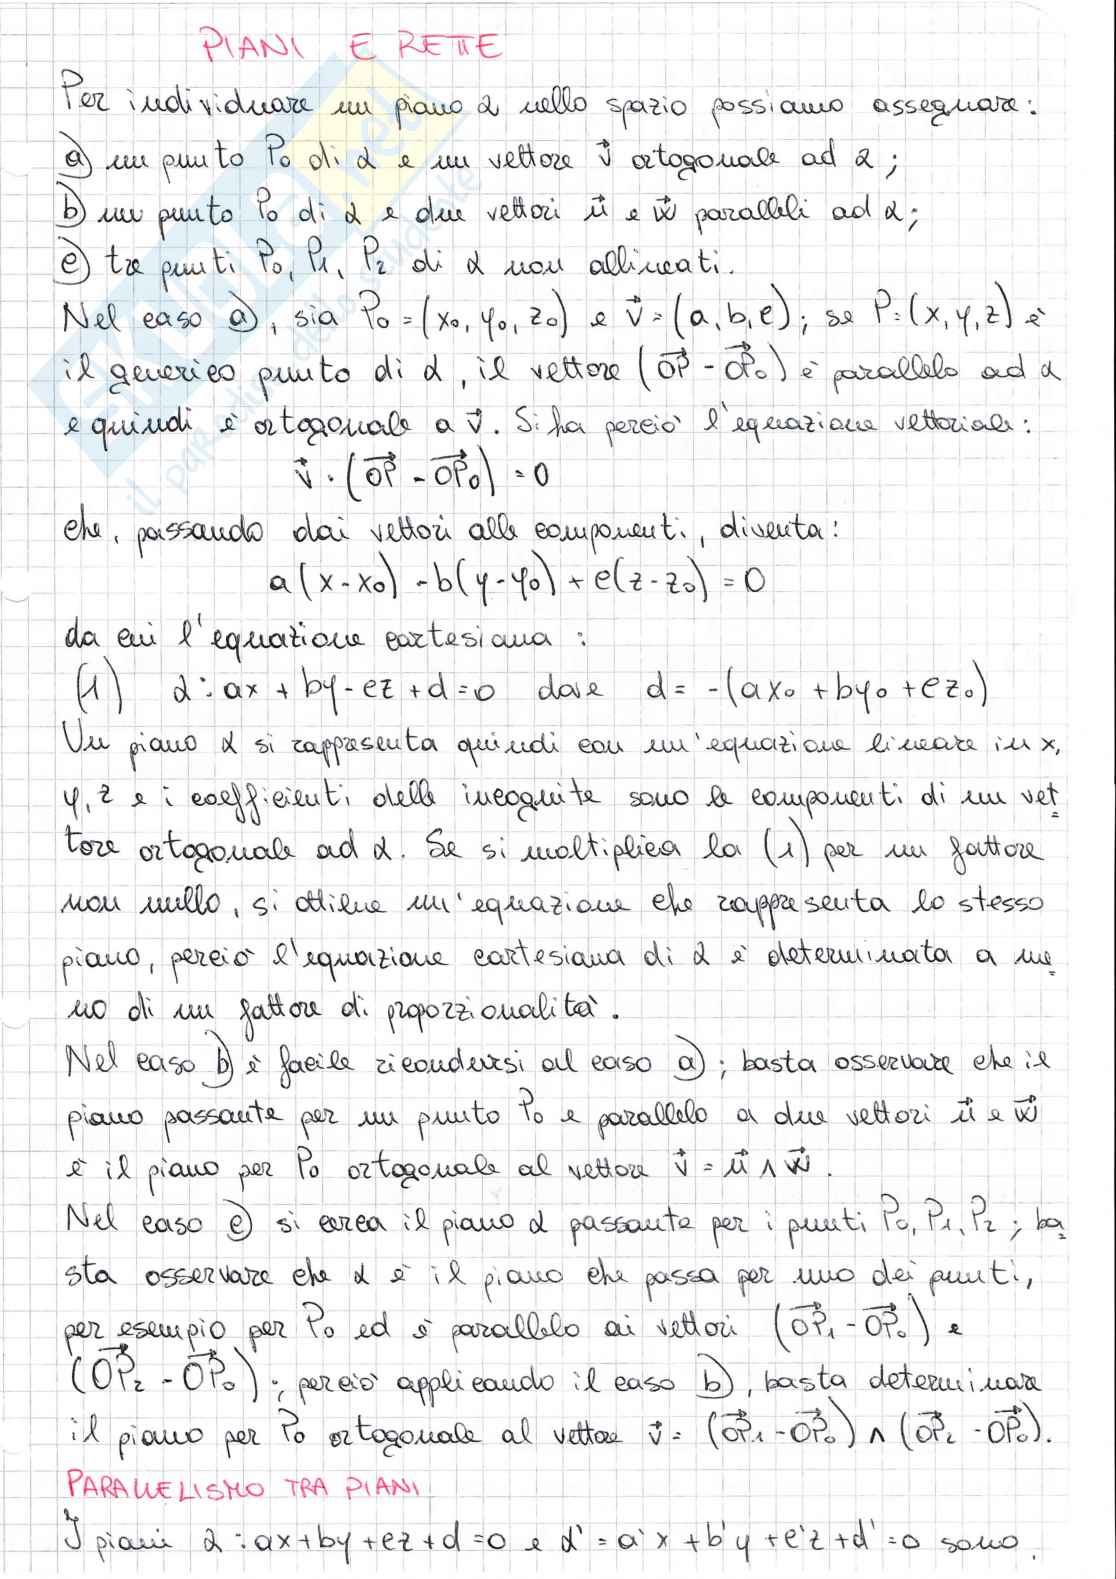 PIANI E RETTE
Per individuare un piano α nello spazio possiamo assegnare:
a) un punto P₀ di α e un vettore v⃗ ortogonale ad α;
b) un punto P₀ di α e due vettori u⃗ e w⃗ paralleli ad α;
c) tre punti P₀, P₁, P₂ di α non allineati.
Nel caso a), sia P₀=(x₀, y₀, z₀) e v⃗=(a,b,c); se P=(x,y,z) è
il generico punto di α, il vettore (OP⃗ - OP⃗₀) è parallelo ad α
e quindi è ortogonale a v⃗. Si ha perciò l'equazione vettoriale:
v⃗ · (OP⃗ - OP⃗₀) = 0
che, passando dai vettori alle componenti, diventa:
a(x-x₀) - b(y-y₀) + c(z-z₀) = 0
da cui l'equazione cartesiana:
(1) α: ax + by - cz + d = 0 dove d = -(ax₀ + by₀ + cz₀)
Un piano α si rappresenta quindi con un'equazione lineare in x,
y, z e i coefficienti delle incognite sono le componenti di un vet
tore ortogonale ad α. Se si moltiplica la (1) per un fattore
non nullo, si ottiene un'equazione che rappresenta lo stesso
piano, perciò l'equazione cartesiana di α è determinata a me
no di un fattore di proporzionalità.
Nel caso b) è facile ricondursi al caso a); basta osservare che il
piano passante per un punto P₀ e parallelo a due vettori u⃗ e w⃗
è il piano per P₀ ortogonale al vettore v⃗ = u⃗ ∧ w⃗.
Nel caso c) si cerca il piano α passante per i punti P₀, P₁, P₂; ba
sta osservare che α è il piano che passa per uno dei punti,
per esempio per P₀ ed è parallelo ai vettori (OP⃗₁ - OP⃗₀) e
(OP⃗₂ - OP⃗₀); perciò applicando il caso b), basta determinare
il piano per P₀ ortogonale al vettore v⃗ = (OP⃗₁ - OP⃗₀) ∧ (OP⃗₂ - OP⃗₀).
PARALLELISMO TRA PIANI
I piani α: ax+by+cz+d=0 e α' = a'x + b'y + c'z + d' = 0 sono
SKUOLA.net
il paradiso dello studente